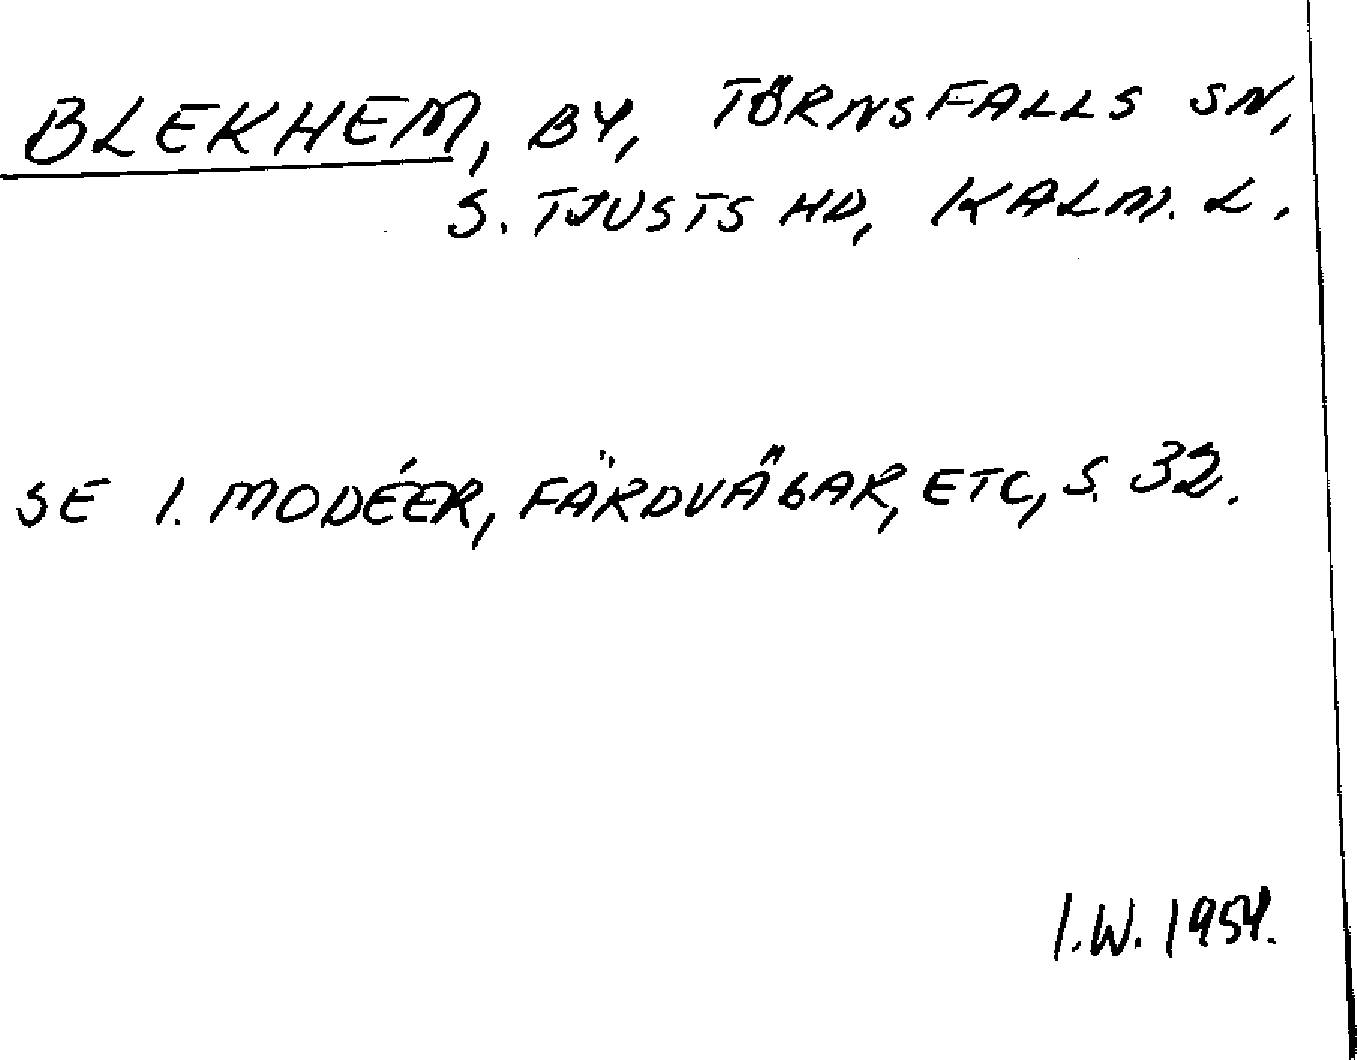 BLEKHEM, BY, TÖRNSFALLS SN,
S. TJUSTS HD, KALM. L.
SE I. MODÉER, FÄRDVÄGAR, ETC, S. 32.
I.W. 1954.